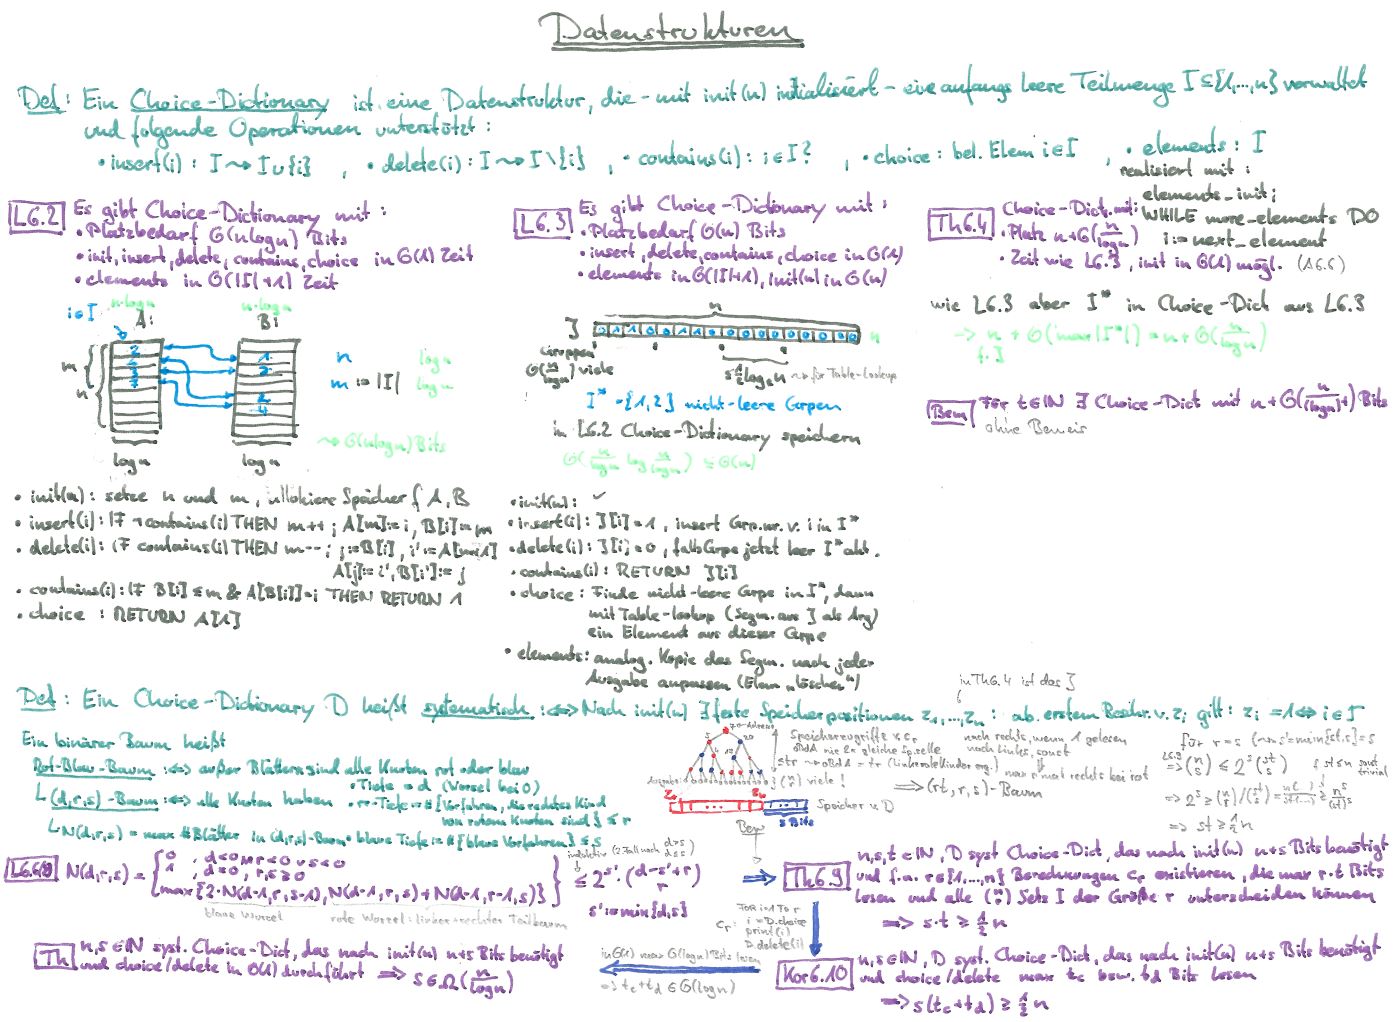 Datenstrukturen
Def: Ein Choice-Dictionary ist eine Datenstruktur, die - mit init(n) initialisiert - eine anfangs leere Teilmenge I ⊆ {1,...,n} verwaltet
und folgende Operationen unterstützt:
• insert(i): I ⇝ I ∪ {i} , • delete(i): I ⇝ I \ {i} , • contains(i): i ∈ I? , • choice: bel. Elem i ∈ I , • elements: I
realisiert mit:
elements_init;
WHILE more_elements DO
i := next_element
L6.2 Es gibt Choice-Dictionary mit:
• Platzbedarf O(n log n) Bits
• init, insert, delete, contains, choice in O(1) Zeit
• elements in O(|I|+1) Zeit
n·log n n·log n
i ∈ I A: B:
m n
2 1 3 7
1 3 2 4
n log n
m := |I| log n
⇝ O(n log n) Bits
log n log n
• init(n): setze n und m, allokiere Speicher f. A, B
• insert(i): IF ¬contains(i) THEN m++; A[m]:=i, B[i]:=m
• delete(i): IF contains(i) THEN m--; j:=B[i], i':=A[m+1]
A[j]:=i', B[i']:=j
• contains(i): IF B[i] ≤ m & A[B[i]]=i THEN RETURN 1
• choice : RETURN A[1]
L6.3 Es gibt Choice-Dictionary mit:
• Platzbedarf O(n) Bits
• insert, delete, contains, choice in O(1)
• elements in O(|I|+1), init(n) in O(n)
n
J 0 1 1 0 0 1 1 0 0 0 0 0 0 0 0 0 n
Gruppen
O(n/log n) viele
≤ ½ log₂ n ⇝ für Table-Lookup
I* = {1,2} nicht-leere Grpen
in L6.2 Choice-Dictionary speichern
O(n/log n · log n/log n) ⊆ O(n)
• init(n): ✓
• insert(i): J[i]=1, insert Grp.nr. v. i in I*
• delete(i): J[i]=0, falls Grpe jetzt leer I* akt.
• contains(i): RETURN J[i]
• choice: Finde nicht-leere Grpe in I*, dann
mit Table-lookup (Segm. aus J als Arg)
ein Element aus dieser Grpe
• elements: analog. Kopie des Segm. nach jeder
Ausgabe anpassen (Elem „löschen")
Th6.4 Choice-Dict. mit:
• Platz n+O(n/log n)
• Zeit wie L6.3, init in O(1) mögl. (A6.6)
wie L6.3 aber I* in Choice-Dich aus L6.3
→ n + O(max |I*|) = n + O(n/log n)
f. J
Bem Für t ∈ ℕ ∃ Choice-Dict mit n + O(n/(log n)^t) Bits
ohne Beweis
in Th6.4 ist das J
Def: Ein Choice-Dictionary D heißt systematisch :⇔ Nach init(n) ∃ feste Speicherpositionen z₁,...,zₙ: ab. erstem Beschr. v. zᵢ gilt: zᵢ = 1 ⇔ i ∈ I
Ein binärer Baum heißt
Rot-Blau-Baum :⇔ außer Blättern sind alle Knoten rot oder blau
(d,r,s)-Baum :⇔ alle Knoten haben • Tiefe ≤ d (Wurzel bei 0)
• rr-Tiefe = #{Vorfahren, die rechtes Kind
von rotem Knoten sind} ≤ r
N(d,r,s) = max #Blätter in (d,r,s)-Baum • blaue Tiefe = #{blaue Vorfahren} ≤ s
Speicherzugriffe v. c_r
oBdA nie 2x gleiche Sp.zelle
(n r) viele!
Ausgabe:
Speicher v. D
s Bits
nach rechts, wenn 1 gelesen
nach links, sonst
nur r mal rechts bei rot
⇒ (rt, r, s)-Baum
für r=s (⇝ s'=min{st,s}=s
L6.8
⇒ (n s) ≤ 2^s (st s) f. st ≤ n sonst trivial
⇒ st ≥ ½ n
L6.6/8 N(d,r,s) = { 0 , d<0 ∨ r<0 ∨ s<0
1 , d=0, r,s ≥ 0
max{2·N(d-1,r,s-1), N(d-1,r,s)+N(d-1,r-1,s)}
blaue Wurzel rote Wurzel: linker+rechter Teilbaum
≤ 2^s' · (d-s'+r r)
s' := min{d,s}
Bew
FOR i=1 TO r
c_r: i = D.choice
print(i)
D.delete(i)
Th6.9 n,s,t ∈ ℕ, D syst Choice-Dict, das nach init(n) n+s Bits benötigt
und f.a. r ∈ {1,...,n} Berechnungen c_r existieren, die max r·t Bits
lesen und alle (n r) Sets I der Größe r unterscheiden können
⇒ s·t ≥ ½ n
Th n,s ∈ ℕ syst. Choice-Dict, das nach init(n) n+s Bits benötigt
und choice/delete in O(1) durchführt ⇒ s ∈ Ω(n/log n)
in O(1) max O(log n) Bits lesen
⇒ t_c + t_d ∈ O(log n)
Kor6.10 n,s ∈ ℕ, D syst. Choice-Dict, das nach init(n) n+s Bits benötigt
und choice/delete max t_c bzw. t_d Bits lesen
⇒ s(t_c+t_d) ≥ ½ n